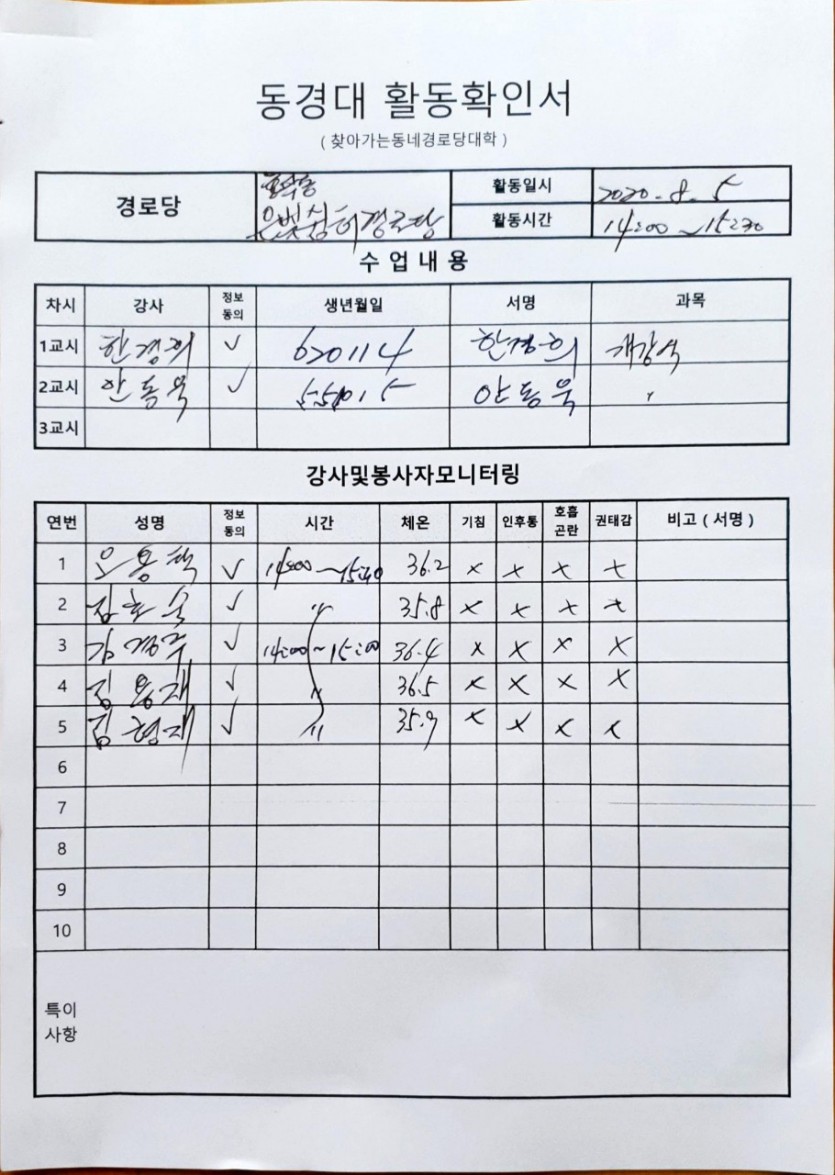 동경대 활동확인서
( 찾아가는동네경로당대학 )
경로당 은빛쉼터경로당 활동일시 2020.8.5
활동시간 14:00~15:30
수업내용
차시 강사 정보동의 생년월일 서명 과목
1교시 한경희 ✓ 620114 한경희
2교시 안동욱 ✓ 안동욱 〃
3교시
강사및봉사자모니터링
연번 성명 정보동의 시간 체온 기침 인후통 호흡곤란 권태감 비고 ( 서명 )
1 오용택 ✓ 14:00~15:40 36.2 × × × ×
2 ✓ 〃 35.8 × × × ×
3 ✓ 14:00~15:00 36.4 × × × ×
4 김용재 ✓ 〃 36.5 × × × ×
5 김형재 ✓ 〃 35.9 × × × ×
6
7
8
9
10
특이
사항